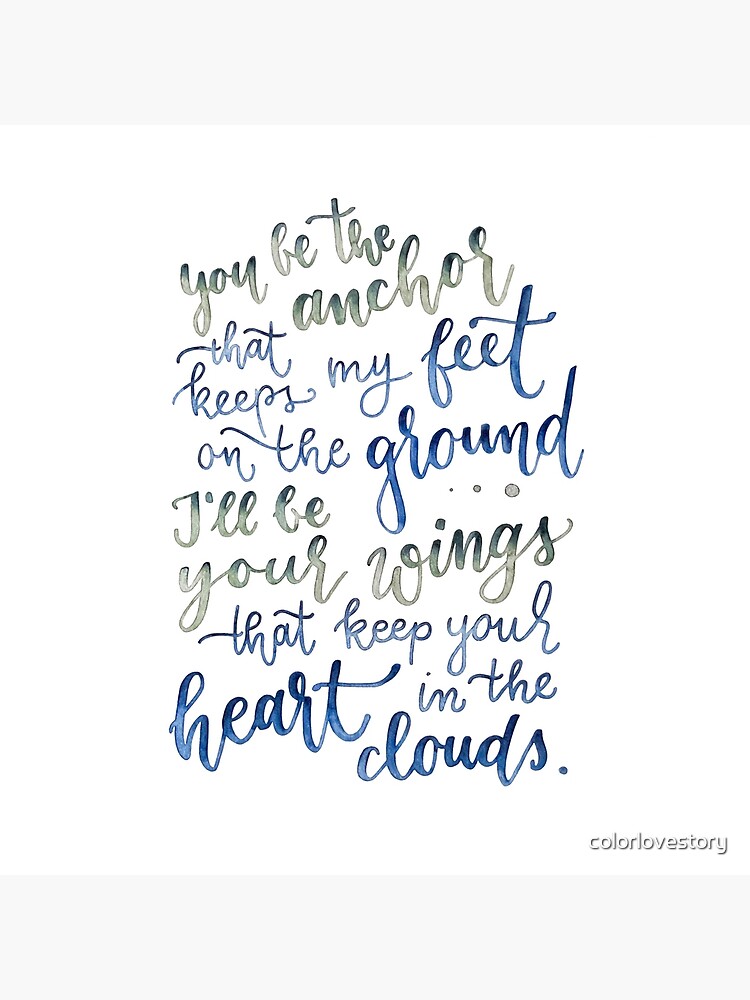 you be the
anchor
that
keeps my feet
on the ground
...
I'll be
your wings
that keep your
heart in the
clouds.
colorlovestory